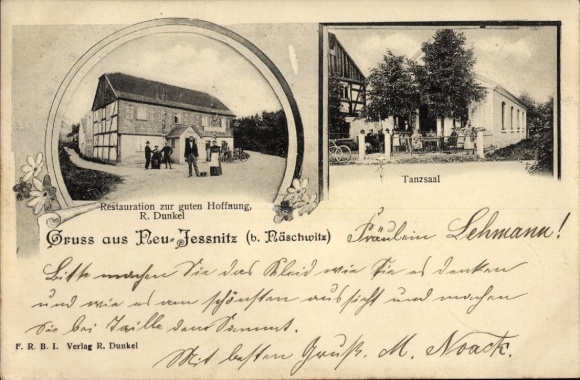 Restauration zur guten Hoffnung,
R. Dunkel
Tanzsaal
Gruss aus Neu-Jessnitz (b. Räschwitz)
Fräulein Lehmann!
Bitte machen Sie das Kleid wie Sie es denken
und wie es am schönsten aussieht und machen
Sie bei Taille den Sammt.
Mit besten Gruß. M. Noack.
F. R. B. I. Verlag R. Dunkel